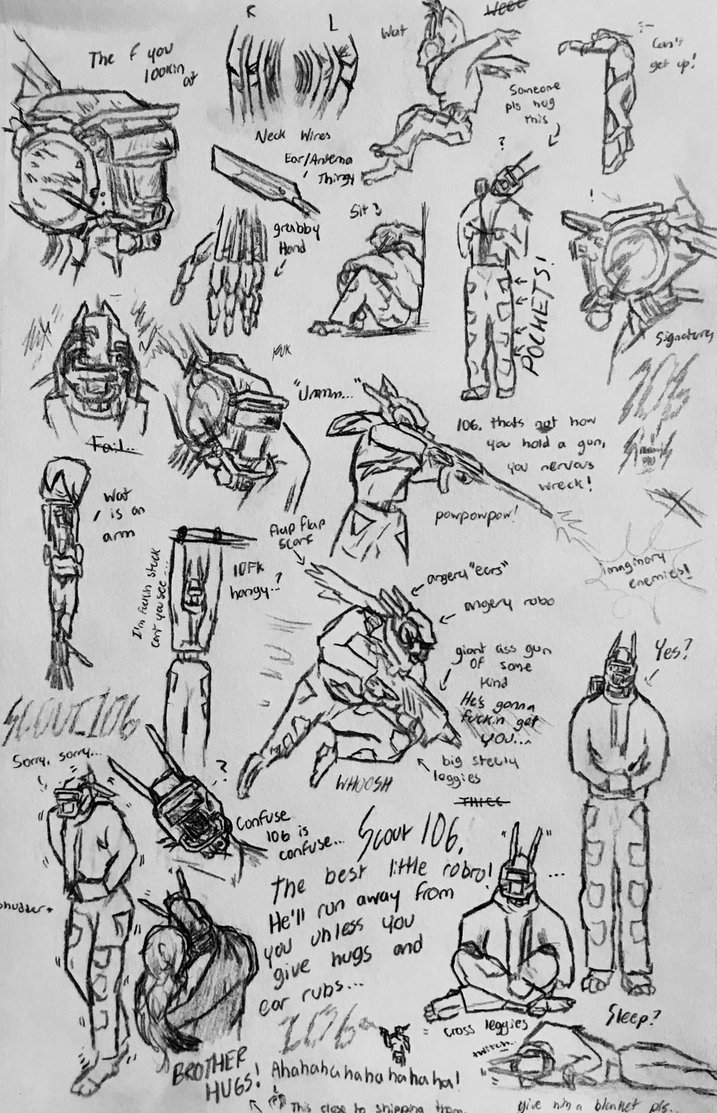 The F you
lookin
at
R
L
Neck Wires
Ear/Antenna
Thingy
grabby
Hand
Wat
WEEE
Someone
pls hug
this
?
Can't
get up!
Sit 3
POCKETS!
!
Signatures
106
Fail..
"Umm..."
106, thats not how
you hold a gun,
you nervous
wreck!
powpowpow!
Imaginary
enemies!
Wat
is an
arm
I'm fuckin stuck
cant you see...
hangy..?
flap flap
scarf
angery "ears"
angery robo
giant ass gun
of some
kind
He's gonna
fuckin get
YOU...
big steely
leggies
WHOOSH
Yes?
SCOUT 106
Sorry, sorry...
?
Confuse
106 is
confuse...
THICC
Scout 106,
the best little robro!
He'll run away from
you unless you
give hugs and
ear rubs...
...
106
cross leggies
BROTHER
HUGS!
Ahahahahahahahaha!
This close to shipping them
Sleep?
twitch..
give him a blanket pls..